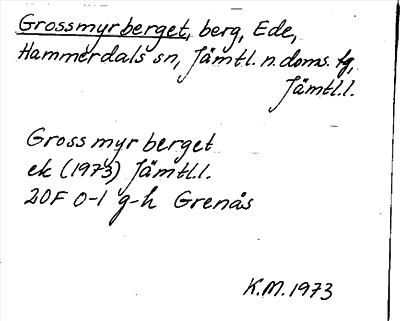 Grossmyrberget, berg, Ede,
Hammerdals sn, Jämtl. n. doms. tg,
Jämtl.l.
Grossmyrberget
ek (1973) Jämtl.l.
20F 0-1 g-h Grenås
K.M. 1973